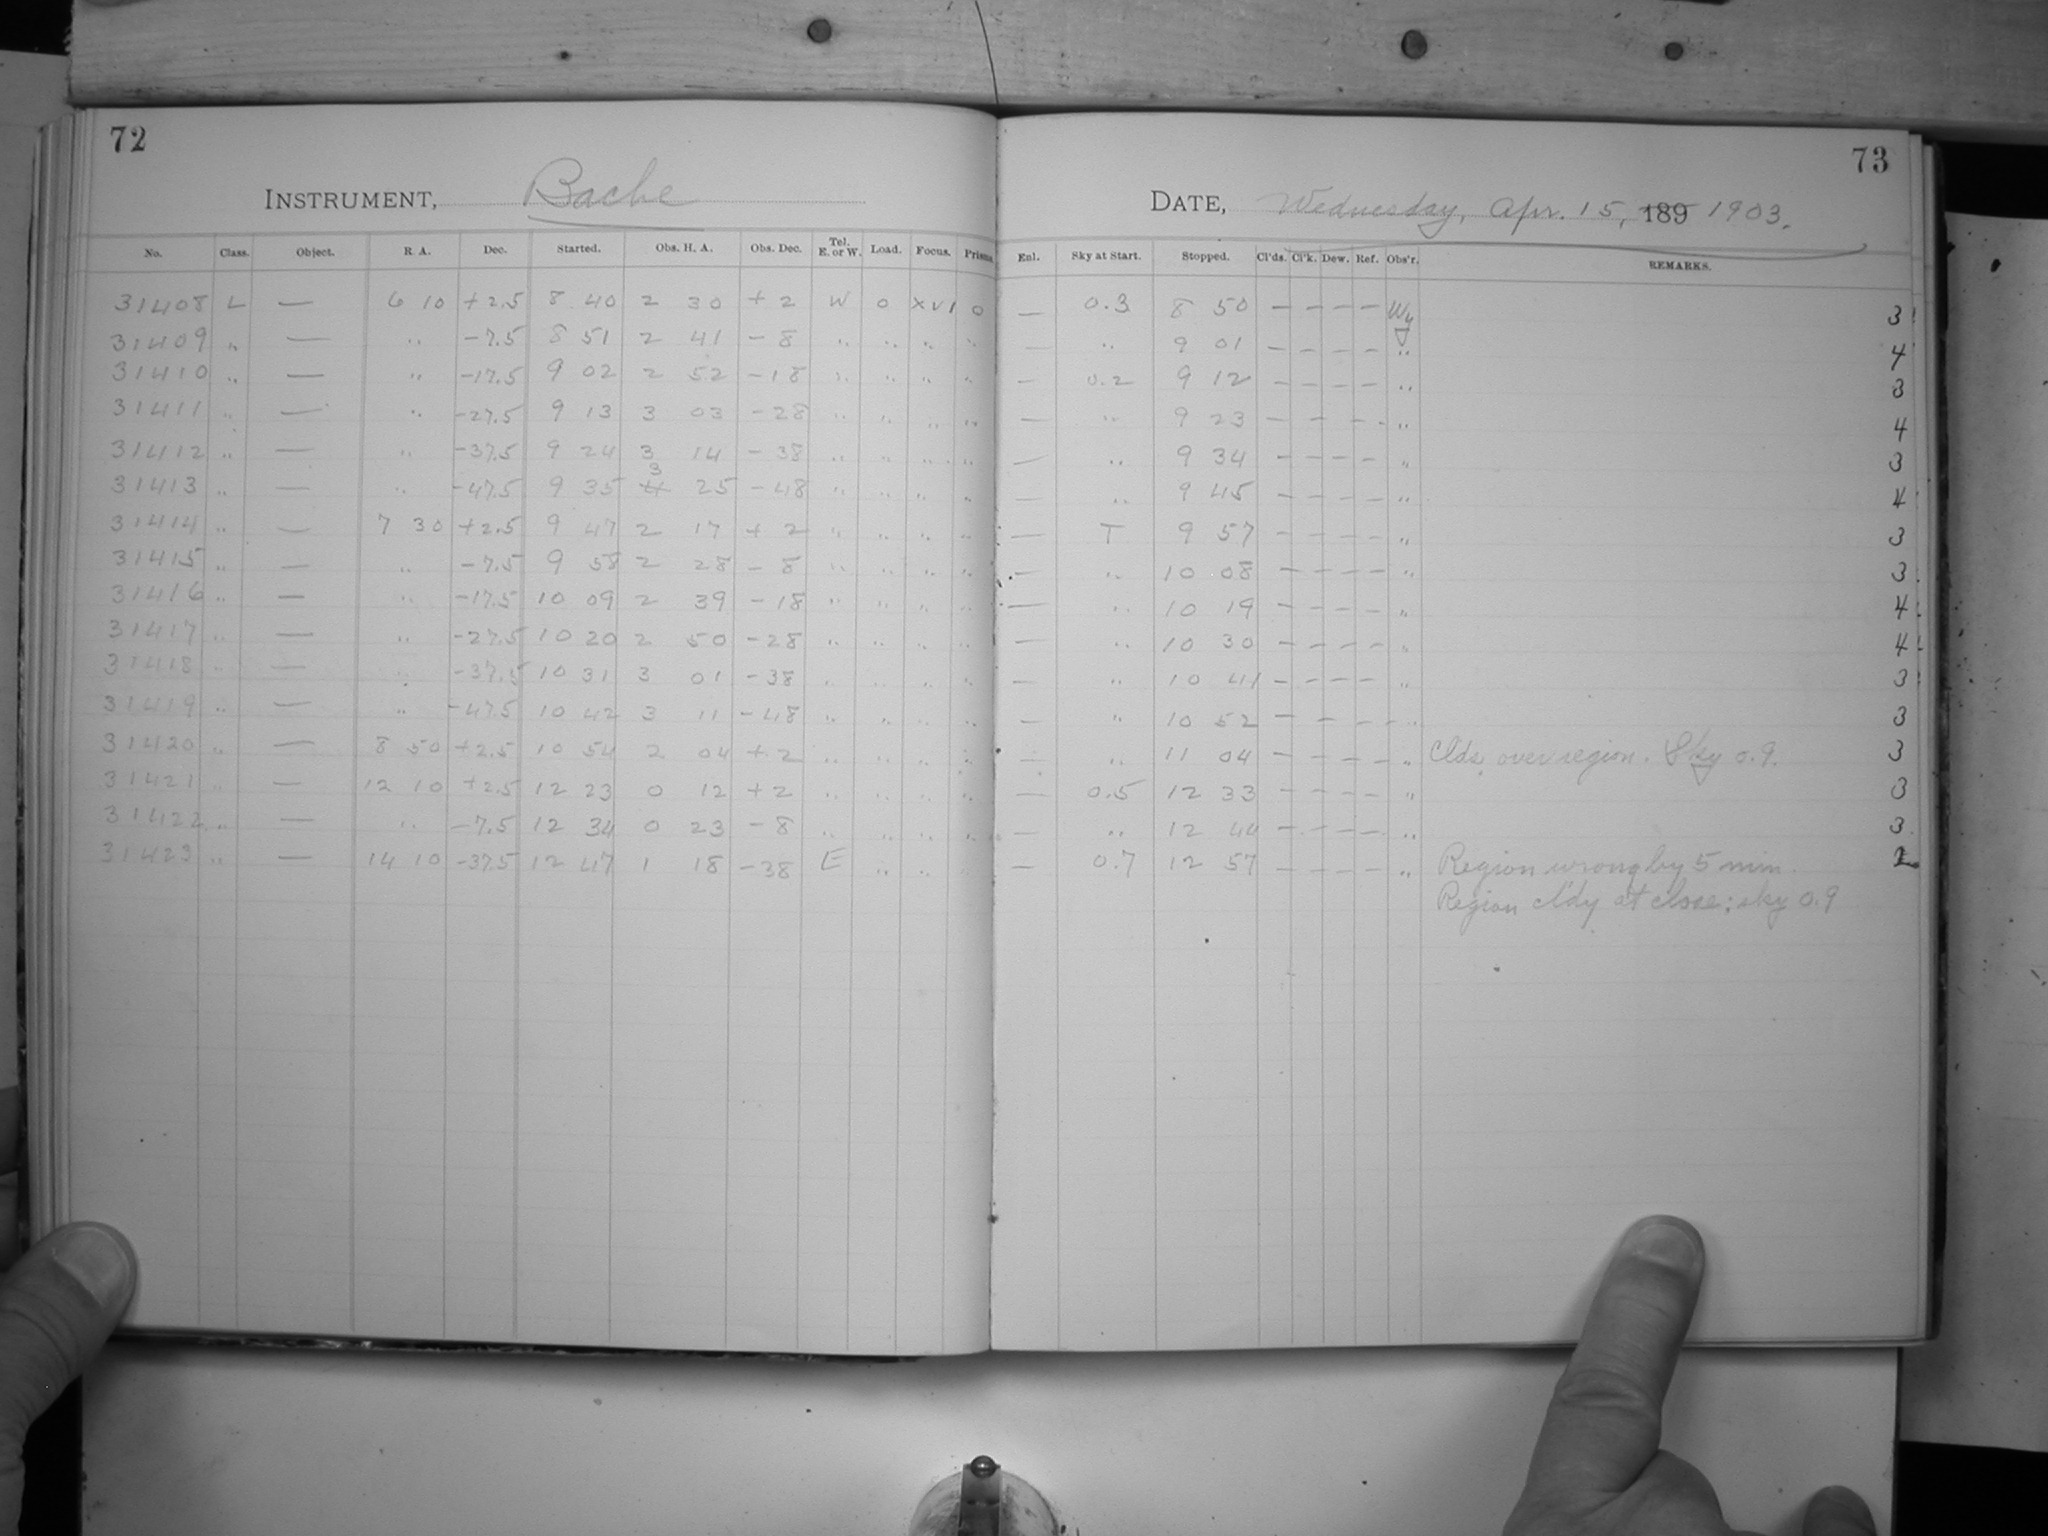 72
INSTRUMENT, Bache
No. Class. Object. R A. Dec. Started. Obs. H. A. Obs. Dec. Tel. E. or W. Load. Focus. Prisms
31408 L — 6 10 +2.5 8 40 2 30 +2 W 0 XVI 0
31409 " — " -7.5 8 51 2 41 -8 " " " "
31410 " — " -17.5 9 02 2 52 -18 " " " "
31411 " — " -27.5 9 13 3 03 -28 " " " "
31412 " — " -37.5 9 24 3 14 -38 " " " "
31413 " — " -47.5 9 35 3 4 25 -48 " " " "
31414 " — 7 30 +2.5 9 47 2 17 +2 " " " "
31415 " — " -7.5 9 58 2 28 -8 " " " "
31416 " — " -17.5 10 09 2 39 -18 " " " "
31417 " — " -27.5 10 20 2 50 -28 " " " "
31418 " — " -37.5 10 31 3 01 -38 " " " "
31419 " — " -47.5 10 42 3 11 -48 " " " "
31420 " — 8 50 +2.5 10 54 2 04 +2 " " " "
31421 " — 12 10 +2.5 12 23 0 12 +2 " " " "
31422 " — " -7.5 12 34 0 23 -8 " " " "
31423 " — 14 10 -37.5 12 47 1 18 -38 E " " "
73
DATE, Wednesday, Apr. 15, 189 1903.
Enl. Sky at Start. Stopped. Cl'ds. Cl'k. Dew. Ref. Obs'r. REMARKS.
— 0.3 8 50 — — — — Wy 3
— " 9 01 — — — — " 4
— 0.2 9 12 — — — — " 3
— " 9 23 — — — — " 4
— " 9 34 — — — — " 3
— " 9 45 — — — — " 4
— T 9 57 — — — — " 3
— " 10 08 — — — — " 3
— " 10 19 — — — — " 4
— " 10 30 — — — — " 4
— " 10 41 — — — — " 3
— " 10 52 — — — — " 3
— " 11 04 — — — — " Clds. over region. Sky 0.9. 3
— 0.5 12 33 — — — — " 3
— " 12 44 — — — — " 3
— 0.7 12 57 — — — — " Region wrong by 5 min.
Region cl'dy at close; sky 0.9